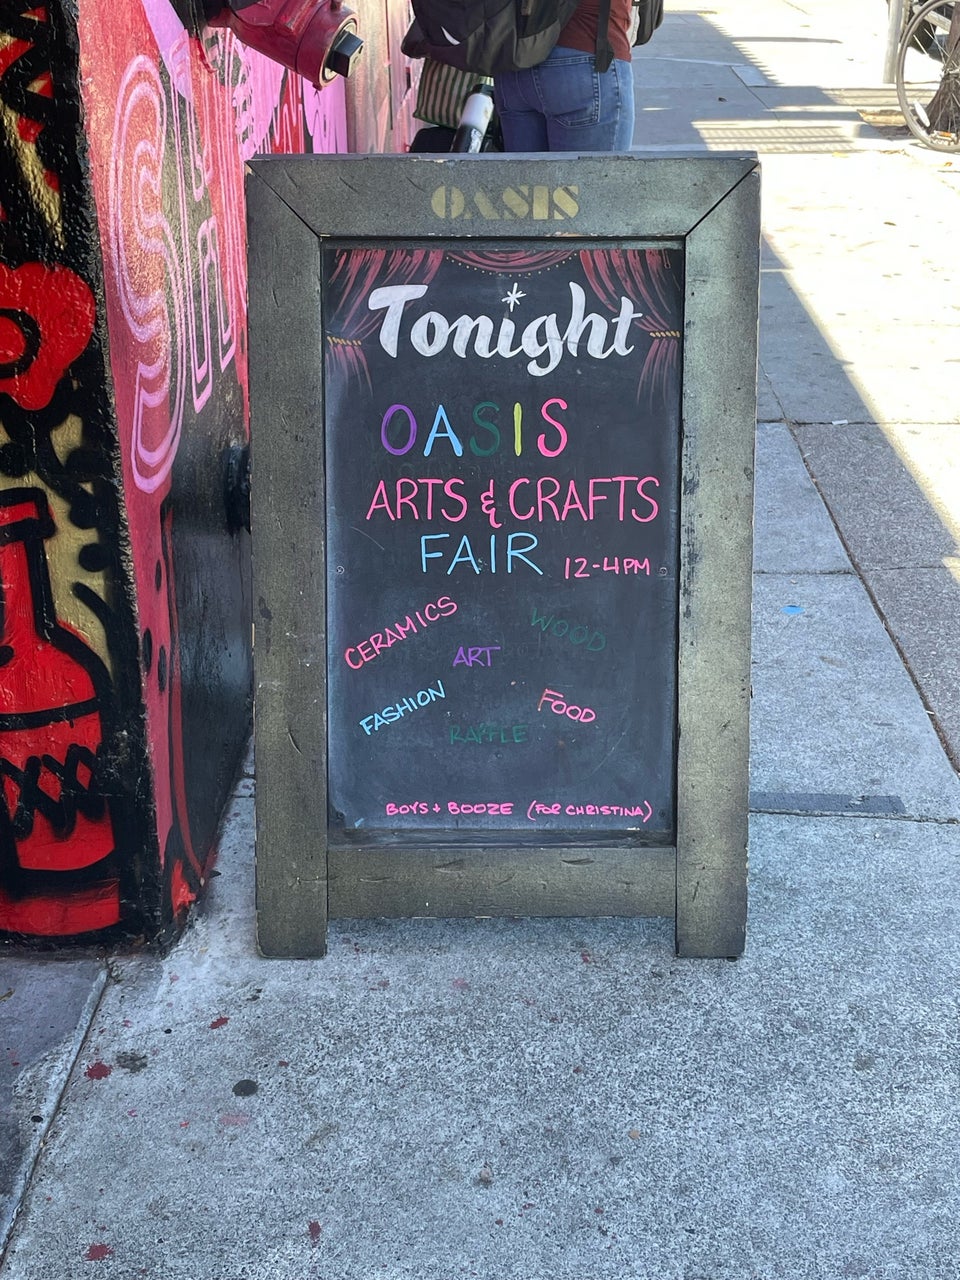 OASIS
Tonight
OASIS
ARTS & CRAFTS
FAIR 12-4PM
CERAMICS
WOOD
ART
FASHION
FOOD
RAFFLE
BOYS + BOOZE (FOR CHRISTINA)